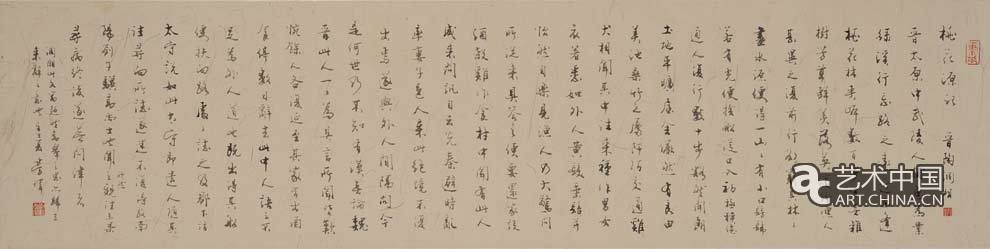 桃花源记 晋陶渊明
晋太原中武陵人捕鱼为業
缘溪行忘路之远近忽逢
桃花林夹岸数百步中无雜
樹芳草鲜美落英缤纷渔人
甚異之复前行欲穷其林
盡水源便得一山山有小口髣髴
若有光便捨船從口入初極狭才
通人復行数十步豁然開朗
土地平曠屋舍儼然有良田
美池桑竹之属阡陌交通雞
犬相聞其中往来種作男女
衣著悉如外人黄髮垂髫并
怡然自樂見漁人乃大驚問
所從来具答之便要還家設
酒殺雞作食村中聞有此人
咸来問訊自云先秦避時亂
率妻子邑人来此绝境不復
出焉遂與外人間隔問今
是何世乃不知有漢無論魏
晋此人一一為具言所聞皆歎
惋餘人各復延至其家皆出酒
食停數日辭去此中人語云不
足為外人道也既出得其船
便扶向路處處誌之及郡下詣
太守說如此太守即遣人隨其
往尋向所誌遂迷不復得路南
陽劉子驥高尚士也聞之欣往未果
尋病终後遂無問津者
艺术中国
ART.CHINA.CN